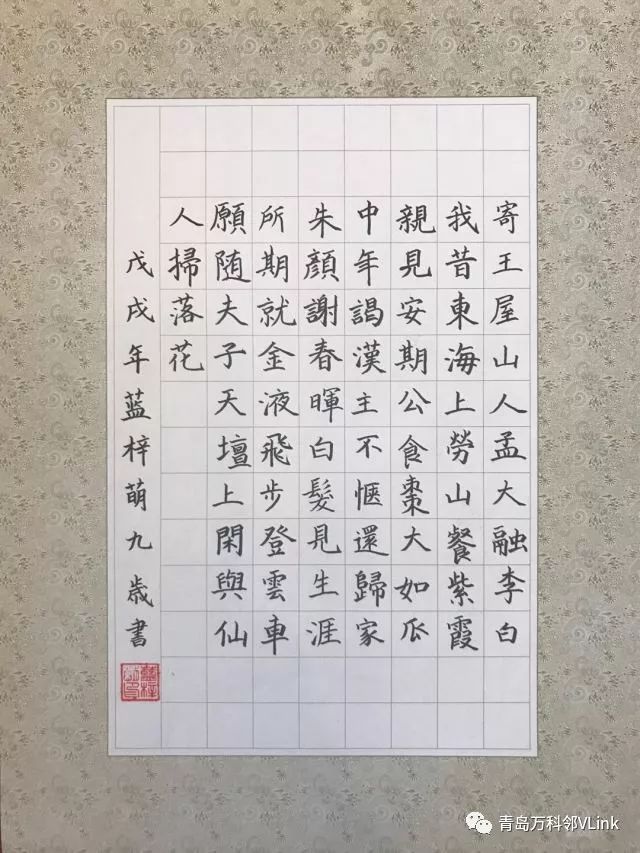 寄王屋山人孟大融李白
我昔東海上勞山餐紫霞
親見安期公食棗大如瓜
中年謁漢主不愜還歸家
朱顏謝春暉白髮見生涯
所期就金液飛步登雲車
願随夫子天壇上閑與仙
人掃落花
戊戌年蓝梓萌九歲書
青岛万科邻VLink